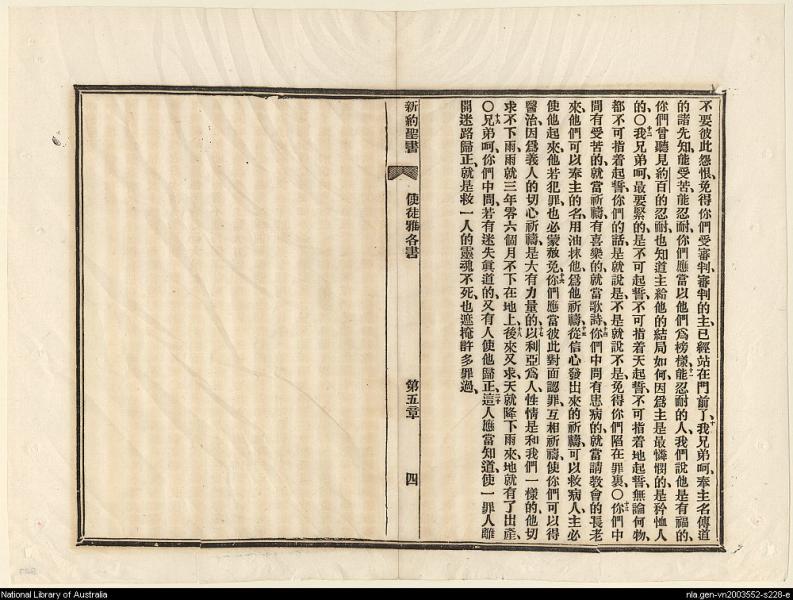 不要彼此怨恨、免得你們受審判、審判的主、已經站在門前了、十我兄弟呵、奉主名傳道
的諸先知、能受苦、能忍耐、你們應當以他們爲榜樣、十一能忍耐的人、我們說他是有福的、
你們曾聽見約百的忍耐、也知道主給他的結局如何、因爲主是最憐憫的、是矜恤人
的、〇十二我兄弟呵、最要緊的是不可起誓、不可指着天起誓、不可指着地起誓、無論何物、
都不可指着起誓、你們的話、是就說是、不是就說不是、免得你們陷在罪裏、〇十三你們中
間有受苦的、就當祈禱、有喜樂的、就當歌詩、十四你們中間有患病的、就當請教會的長老
來、他們可以奉主的名、用油抹他、爲他祈禱、十五從信心發出來的祈禱、可以救病人、主必
使他起來、他若犯罪、也必蒙赦免、十六你們應當彼此對面認罪、互相祈禱、使你們可以得
醫治、因爲義人的切心祈禱、是大有力量的、十七以利亞爲人、性情是和我們一樣的、他切
求不下雨、雨就三年零六個月不下在地上、十八後來又求、天就降下雨來、地就有了出產、
〇十九兄弟呵、你們中間若有迷失眞道的、又有人使他歸正、二十這人應當知道、使一罪人離
開迷路歸正、就是救一人的靈魂不死、也遮掩許多罪過、
新約聖書 使徒雅各書 第五章 四
National Library of Australia
nla.gen-vn2003552-s228-e